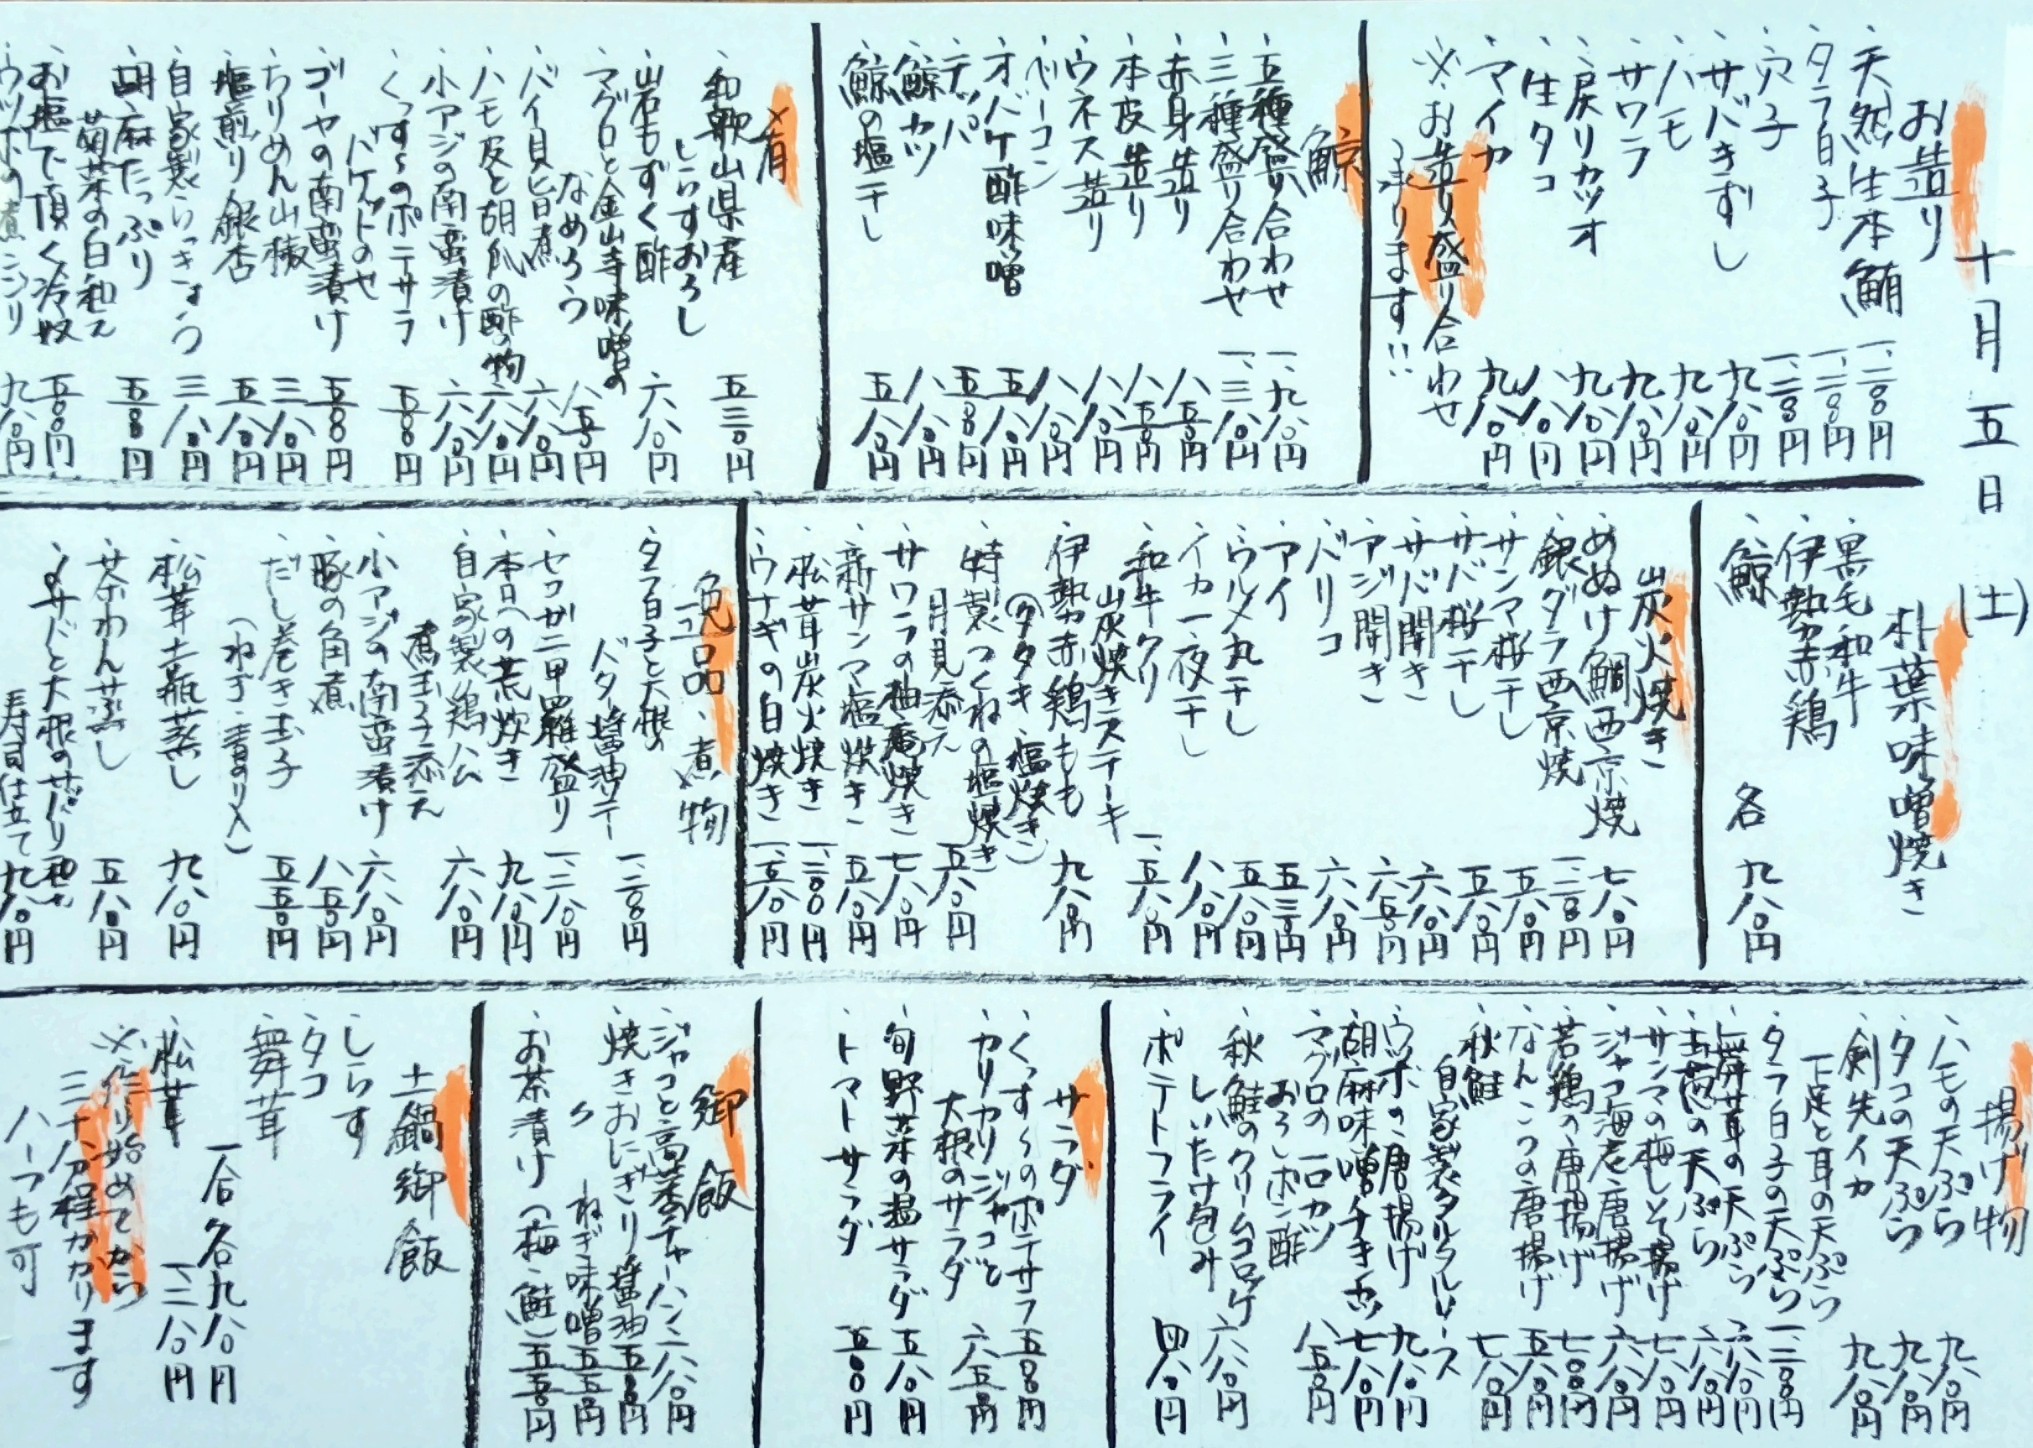 十月五日(土)
お造り
、天然生本鮪 一、二〇〇円
、タラ白子 一、二〇〇円
、穴子 一、二〇〇円
、サバきずし 九八〇円
、ハモ 九八〇円
、サワラ 九八〇円
、戻りカツオ 九八〇円
、生タコ 八八〇円
、マイカ 九八〇円
※お造り盛り合わせ
ります!!
鯨
、五種盛り合わせ 一、九八〇円
、三種盛り合わせ 一、三八〇円
、赤身造り 八五〇円
、本皮造り 八五〇円
、ウネス造り 八八〇円
、ベーコン 八八〇円
、オバケ酢味噌 五八〇円
、テッパ 五〇〇円
、鯨カツ 八八〇円
、鯨の塩干し 五八〇円
肴
、和歌山県産
しらすおろし 五三〇円
、岩もずく酢 六八〇円
、マグロと金山寺味噌の
なめろう 八五〇円
、バイ貝旨煮 六八〇円
、ハモ皮と胡瓜の酢の物 六八〇円
、小アジの南蛮漬け 六八〇円
、くっすぅのポテサラ
バケットのせ 五〇〇円
、ゴーヤの南蛮漬け 五〇〇円
、ちりめん山椒 三八〇円
、塩煎り銀杏 五八〇円
、自家製らっきょう 三八〇円
、胡麻たっぷり
菊菜の白和え 五〇〇円
、お塩で頂く冷奴 五〇〇円
、ウツボの煮こごり 九八〇円
朴葉味噌焼き
、黒毛和牛
、伊勢赤鶏
、鯨
各 九八〇円
炭火焼き
、めぬけ鯛西京焼 七八〇円
、銀ダラ西京焼 一、二〇〇円
、サンマ桜干し 五八〇円
、サバ桜干し 五八〇円
、サバ開き 六八〇円
、アジ開き 六五〇円
、バリコ 六八〇円
、アイ 五三〇円
、ウルメ丸干し 五八〇円
、イカ一夜干し 八八〇円
、和牛クリ
炭焼きステーキ 一、五八〇円
、伊勢赤鶏もも
(タタキ・塩焼き) 九八〇円
、特製つくねの塩焼き
月見添え 五八〇円
、サワラの柚庵焼き 七八〇円
、新サンマ塩焼き 五八〇円
、松茸炭火焼き 一、三〇〇円
、ウナギの白焼き 一、五八〇円
逸品、煮物
、タラ白子と大根の
バター醤油ソテー 一、二〇〇円
、セコガニ甲羅盛り 一、二八〇円
、本日の荒炊き 九八〇円
、自家製鶏ハム
煮玉子添え 六八〇円
、小アジの南蛮漬け 六八〇円
、豚の角煮 八五〇円
、だし巻き玉子
(ねぎ・青のり入) 五五〇円
、松茸土瓶蒸し 九八〇円
、茶わん蒸し 五八〇円
寿司仕立て 九八〇円
揚げ物
、ハモの天ぷら 九八〇円
、タコの天ぷら 九八〇円
、剣先イカ
下足と耳の天ぷら 九八〇円
、タラ白子の天ぷら 一、二〇〇円
、舞茸の天ぷら 六八〇円
、玉葱の天ぷら 六八〇円
、サンマの梅しそ揚げ 七八〇円
、ジャコ海老唐揚げ 六八〇円
、若鶏の唐揚げ 七〇〇円
、なんこつの唐揚げ 五八〇円
、秋鮭
自家製タルタルソース 七八〇円
、ウツボの唐揚げ 九八〇円
、胡麻味噌チキカツ 七八〇円
、マグロの一口カツ
おろしポン酢 八五〇円
、秋鮭のクリームコロッケ
しいたけ包み 六八〇円
、ポテトフライ 四八〇円
サラダ
、くっすぅのポテサラ 五〇〇円
、カリカリジャコと
大根のサラダ 六五〇円
、旬野菜の温サラダ 五八〇円
、トマトサラダ 五〇〇円
御飯
、ジャコと高菜チャーハン 六八〇円
、焼きおにぎり 醤油 五〇〇円
〃 ねぎ味噌 五五〇円
、お茶漬け(梅・鮭) 五五〇円
土鍋御飯
、しらす
、タコ
、舞茸
一合各九八〇円
、松茸 一、三八〇円
り始めてから
三十分程かかります
ハーフも可